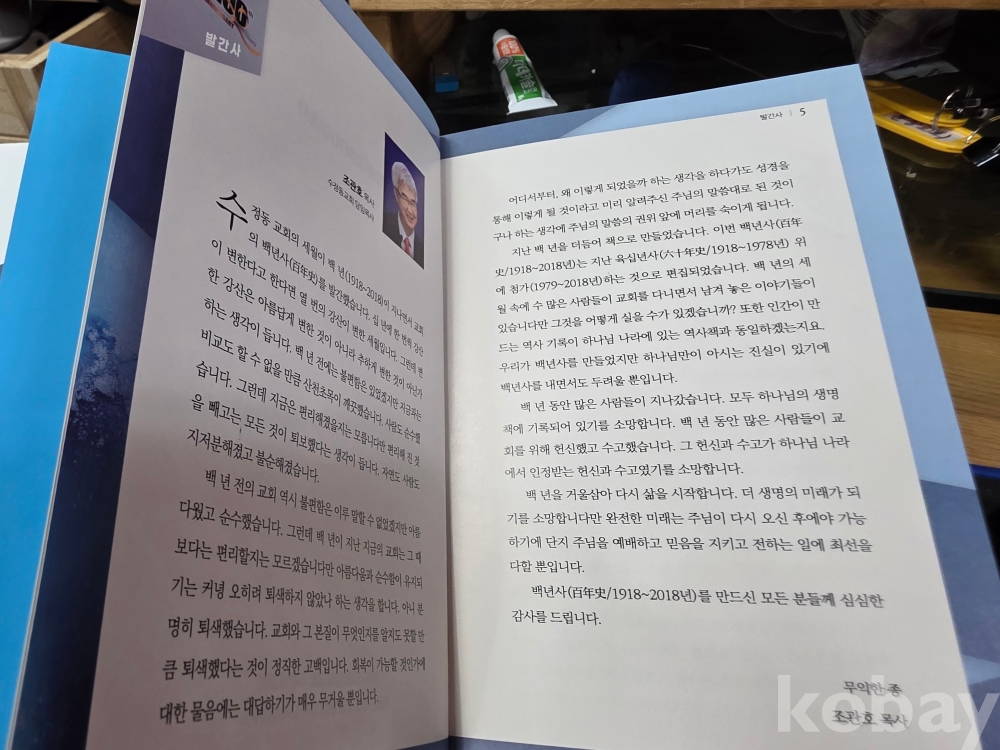 발간사
조관호 목사
수정동교회 담임목사
수정동 교회의 세월이 백 년(1918~2018)이 지나면서 교회
의 백년사(百年史)를 발간했습니다. 십 년에 한 번씩 강산
이 변한다고 한다면 열 번의 강산이 변한 세월입니다. 그런데 변
한 강산은 아름답게 변한 것이 아니라 추하게 변한 것이 아닌가
하는 생각이 듭니다. 백 년 전에는 불편함은 있었겠지만 지금과는
비교도 할 수 없을 만큼 산천초목이 깨끗했습니다. 사람도 순수했
습니다. 그런데 지금은 편리해졌을지는 모릅니다만 편리해 진 것
을 빼고는, 모든 것이 퇴보했다는 생각이 듭니다. 자연도 사람도
지저분해졌고 불순해졌습니다.
백 년 전의 교회 역시 불편함은 이루 말할 수 없었겠지만 아름
다웠고 순수했습니다. 그런데 백 년이 지난 지금의 교회는 그 때
보다는 편리할지는 모르겠습니다만 아름다움과 순수함이 유지되
기는 커녕 오히려 퇴색하지 않았나 하는 생각을 합니다. 아니 분
명히 퇴색했습니다. 교회와 그 본질이 무엇인지를 알지도 못할 만
큼 퇴색했다는 것이 정직한 고백입니다. 회복이 가능할 것인가에
대한 물음에는 대답하기가 매우 무거울 뿐입니다.
발간사 | 5
어디서부터, 왜 이렇게 되었을까 하는 생각을 하다가도 성경을
통해 이렇게 될 것이라고 미리 알려주신 주님의 말씀대로 된 것이
구나 하는 생각에 주님의 말씀의 권위 앞에 머리를 숙이게 됩니다.
지난 백 년을 더듬어 책으로 만들었습니다. 이번 백년사(百年
史/1918~2018년)는 지난 육십년사(六十年史/1918~1978년) 위
에 첨가(1979~2018년)하는 것으로 편집되었습니다. 백 년의 세
월 속에 수 많은 사람들이 교회를 다니면서 남겨 놓은 이야기들이
있습니다만 그것을 어떻게 실을 수가 있겠습니까? 또한 인간이 만
드는 역사 기록이 하나님 나라에 있는 역사책과 동일하겠는지요.
우리가 백년사를 만들었지만 하나님만이 아시는 진실이 있기에
백년사를 내면서도 두려울 뿐입니다.
백 년 동안 많은 사람들이 지나갔습니다. 모두 하나님의 생명
책에 기록되어 있기를 소망합니다. 백 년 동안 많은 사람들이 교
회를 위해 헌신했고 수고했습니다. 그 헌신과 수고가 하나님 나라
에서 인정받는 헌신과 수고였기를 소망합니다.
백 년을 거울삼아 다시 삶을 시작합니다. 더 생명의 미래가 되
기를 소망합니다만 완전한 미래는 주님이 다시 오신 후에야 가능
하기에 단지 주님을 예배하고 믿음을 지키고 전하는 일에 최선을
다할 뿐입니다.
백년사(百年史/1918~2018년)를 만드신 모든 분들께 심심한
감사를 드립니다.
무익한 종
조관호 목사
kobay